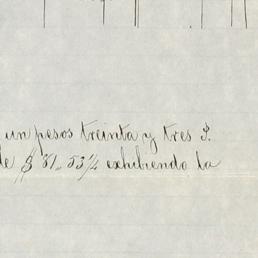 un pesos treinta y tres P.
de $ 81,, 33 ¼ exhibiendo la